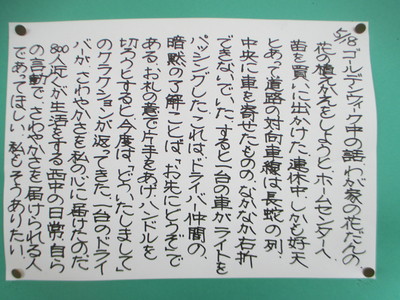 5/8 ゴールデンウィク中の話、わが家の花だんの
花の植えかえをしようと、ホームセンターへ
苗を買いに出かけた。連休中、しかも好天
とあって道路の対向車線は長蛇の列。
中央に車を寄せたものの、なかなか右折
できないでいた。すると一台の車がライトを
パッシングした。これは、ドライバー仲間の、
暗黙の了解ことば、「お先にどうぞ」で
ある。お礼の意で片手をあげ、ハンドルを
切ろうとすると今度は、「どういたしまして」
のクラクションが返ってきた。一台のドライ
バーが、さわやかさを私の心に届けたのだ。
800人近くが生活をする西中の日常、自ら
の言動で、さわやかさを届けられる人
であってほしい。私もそうありたい。